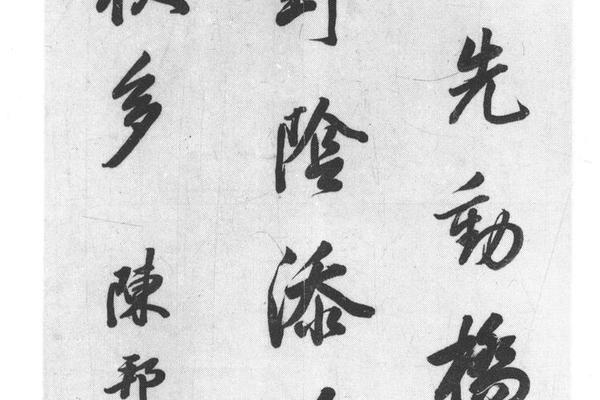 先動橋
陰添
多陳邦